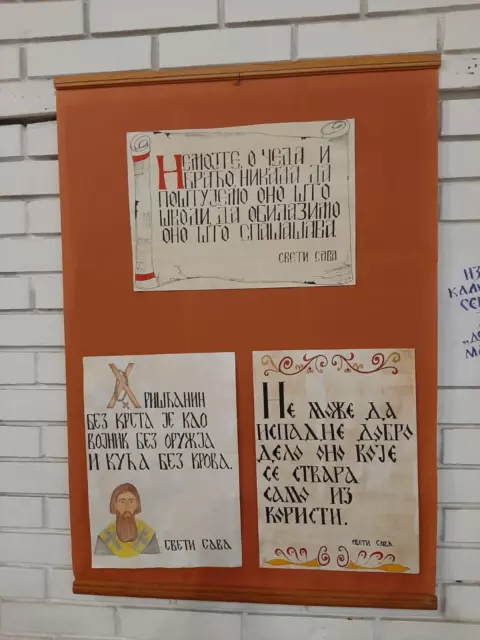 Немојте, о чеда и
браћо, никада да
поштујемо оно што
шкоди, да обилазимо
оно што спашава
свети сава
Хришћанин
без крста је као
војник без оружја
и кућа без крова.
свети сава
Не може да
испадне добро
дело оно које
се ствара
само из
користи.
свети сава